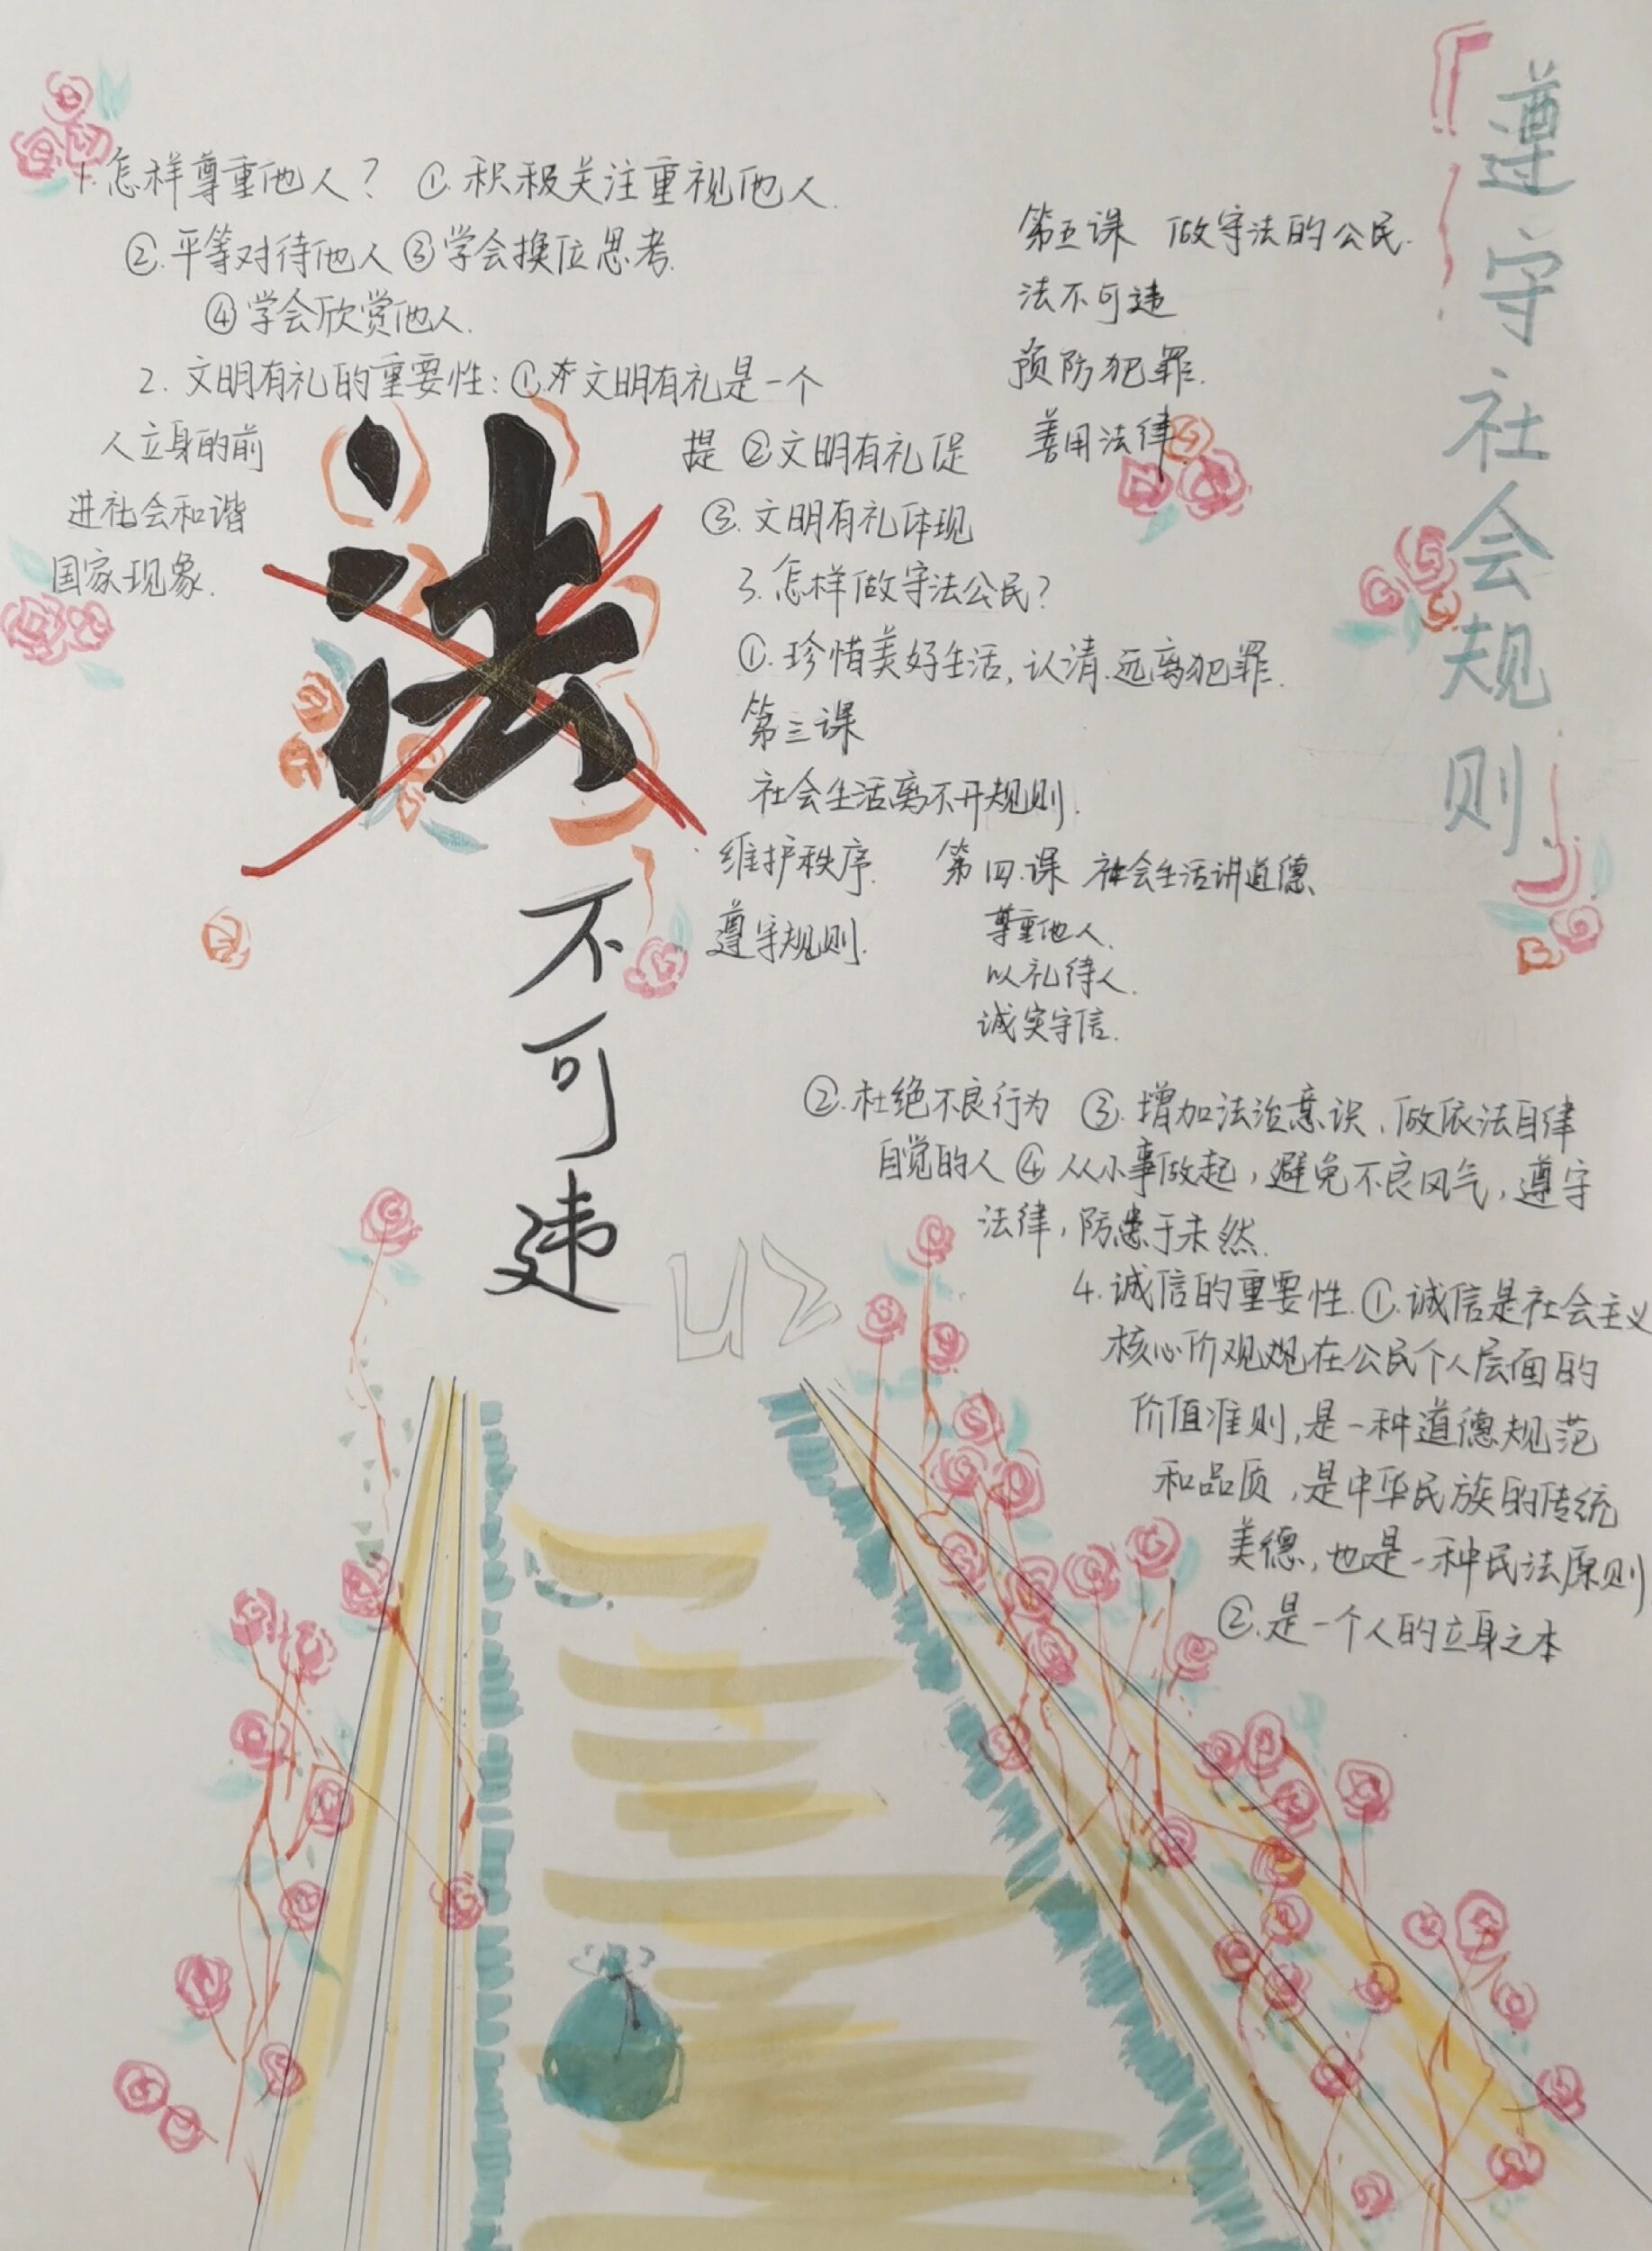 『遵守社会规则』
1.怎样尊重他人? ①.积极关注重视他人.
②.平等对待他人 ③学会换位思考.
④学会欣赏他人.
2. 文明有礼的重要性:①.文明有礼是一个
人立身的前 提 ②文明有礼促
进社会和谐 ③.文明有礼体现
国家现象.
3.怎样做守法公民?
①.珍惜美好生活,认清.远离犯罪.
第三课
社会生活离不开规则.
维护秩序.
遵守规则.
第四.课 社会生活讲道德
尊重他人.
以礼待人.
诚实守信.
第五课 做守法的公民.
法不可违
预防犯罪.
善用法律.
法不可违
②.杜绝不良行为 ③.增加法治意识、做依法自律
自觉的人 ④从小事做起,避免不良风气,遵守
法律,防患于未然.
4.诚信的重要性.①.诚信是社会主义
核心价观观在公民个人层面的
价值准则,是一种道德规范
和品质,是中华民族的传统
美德,也是一种民法原则
②.是一个人的立身之本